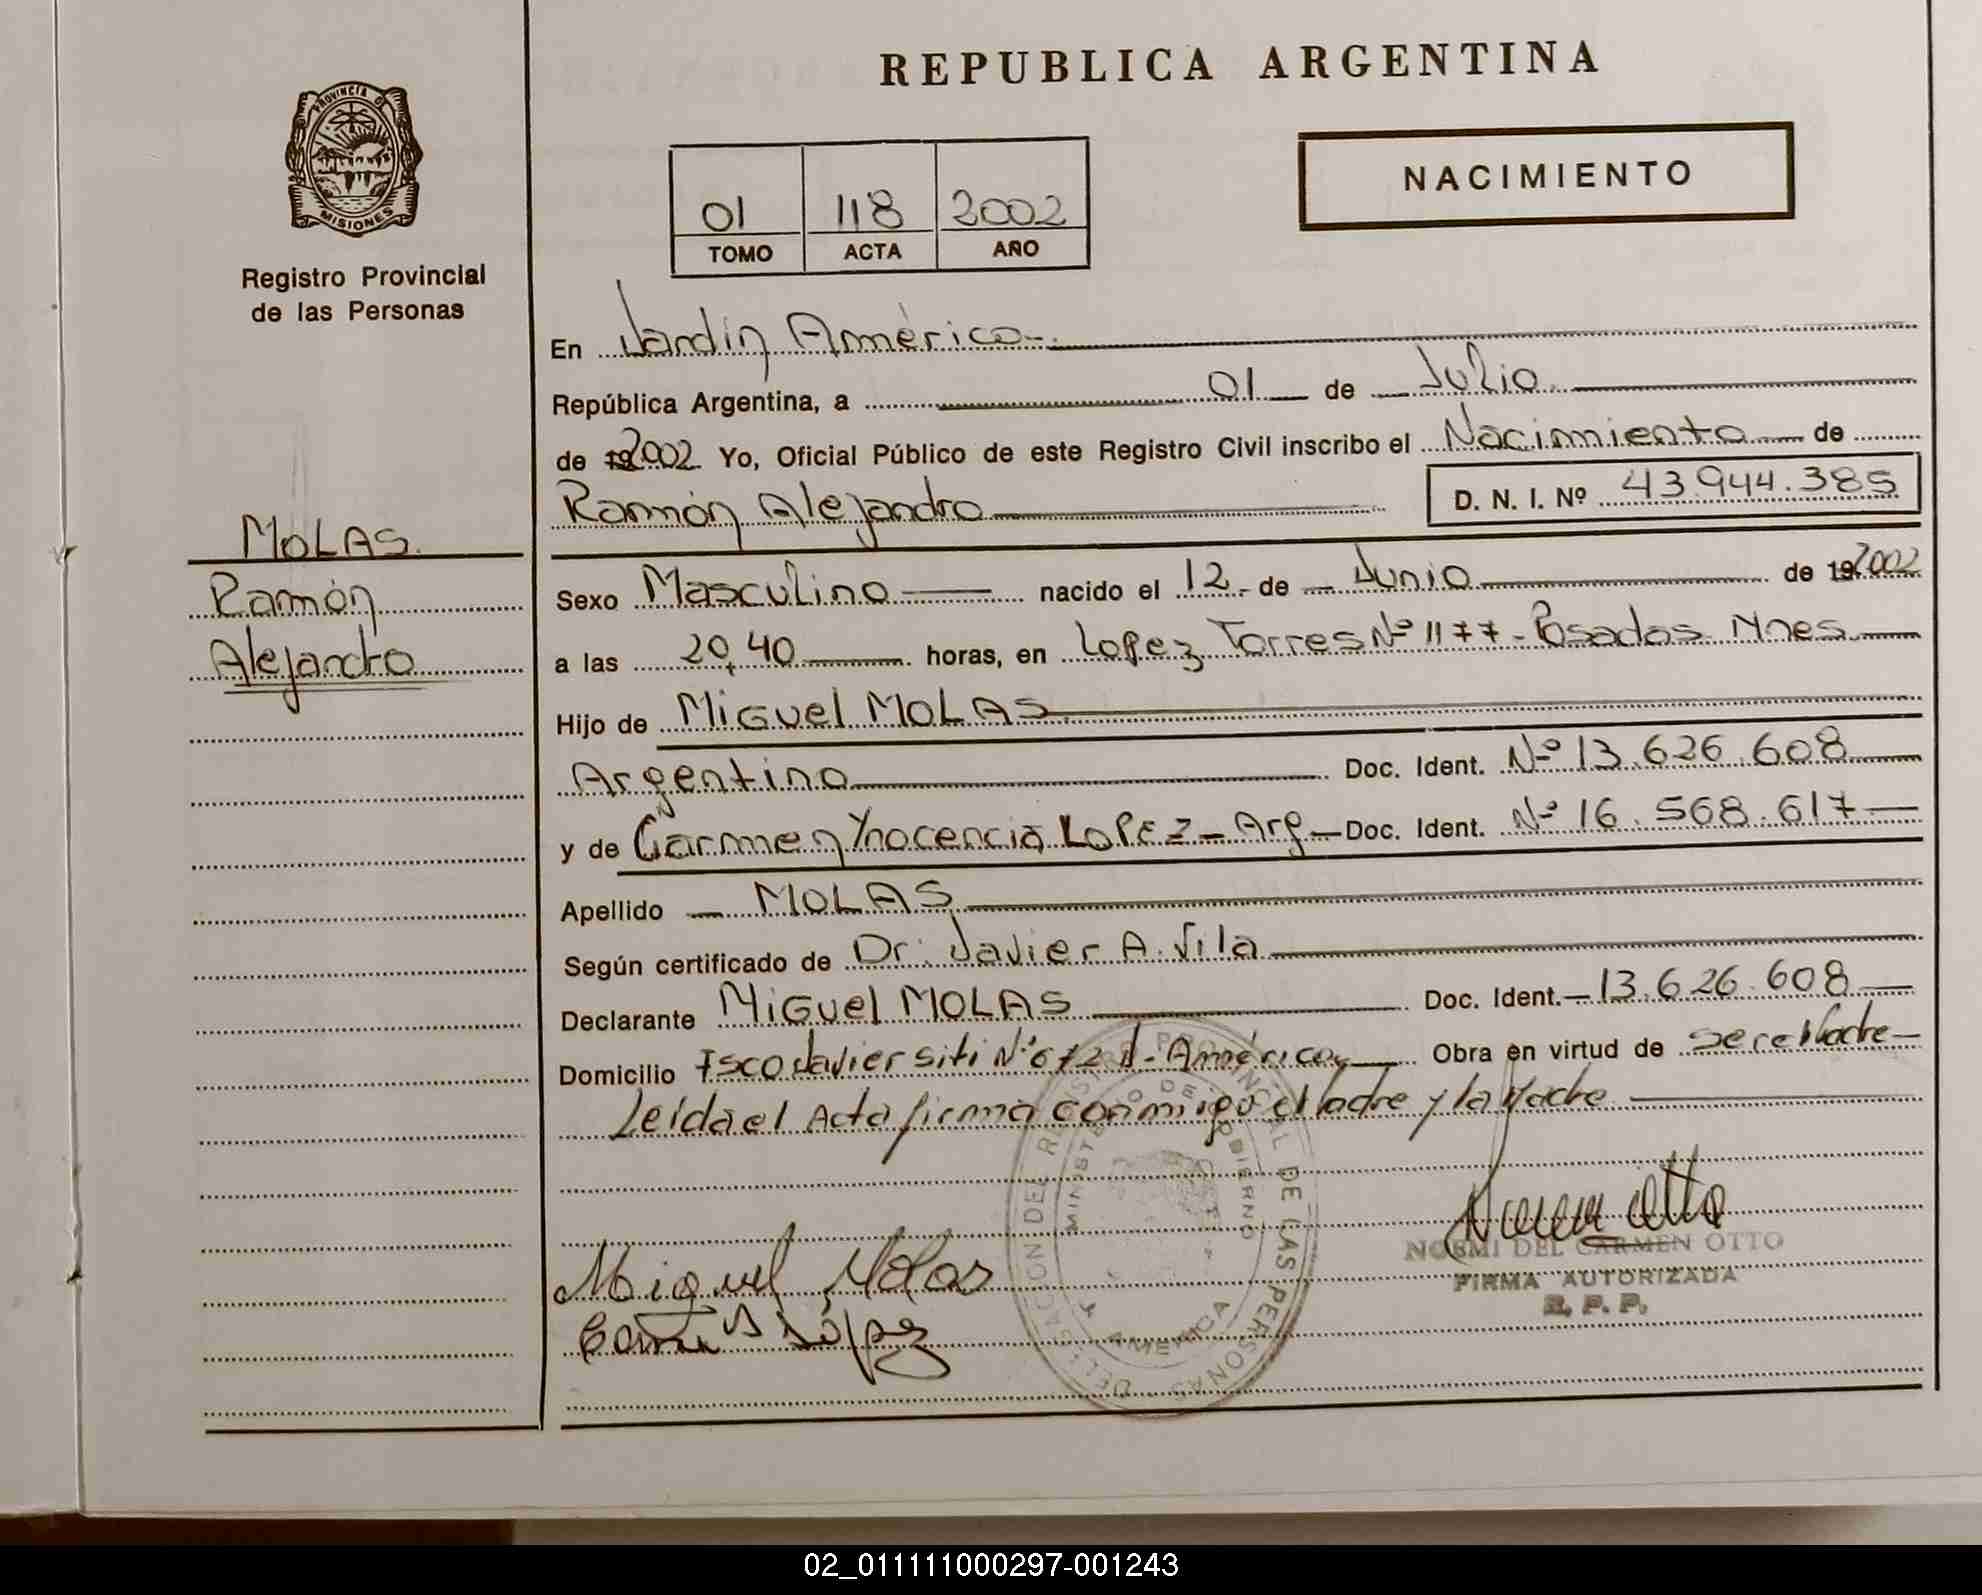 REPUBLICA ARGENTINA
PROVINCIA DE
MISIONES
Registro Provincial
de las Personas
01 118 2002
TOMO ACTA AÑO
NACIMIENTO
En Jardín América
República Argentina, a 01 de Julio
de 192002 Yo, Oficial Público de este Registro Civil inscribo el Nacimiento de
Ramón Alejandro D. N. I. Nº 43.944.385
MOLAS
Ramón
Alejandro
Sexo Masculino nacido el 12 de Junio de 192002
a las 20,40 horas, en Lopez Torres Nº 1177 - Posadas Mnes
Hijo de Miguel MOLAS
Argentino Doc. Ident. Nº 13.626.608
y de Carmen Ynocencia LOPEZ - Arg - Doc. Ident. Nº 16.568.617
Apellido MOLAS
Según certificado de Dr. Javier A. Vila
Declarante Miguel MOLAS Doc. Ident. 13.626.608
Domicilio Fsco Javier Siti Nº 672 J. América Obra en virtud de ser el Padre
Leída el Acta firma conmigo el Padre y la Madre
Miguel Molas
López
NOEMI DEL CARMEN OTTO
FIRMA AUTORIZADA
R. P. P.
DELEGACION DEL REGISTRO PROVINCIAL DE LAS PERSONAS
MINISTERIO DE GOBIERNO
AMERICA
02_011111000297-001243